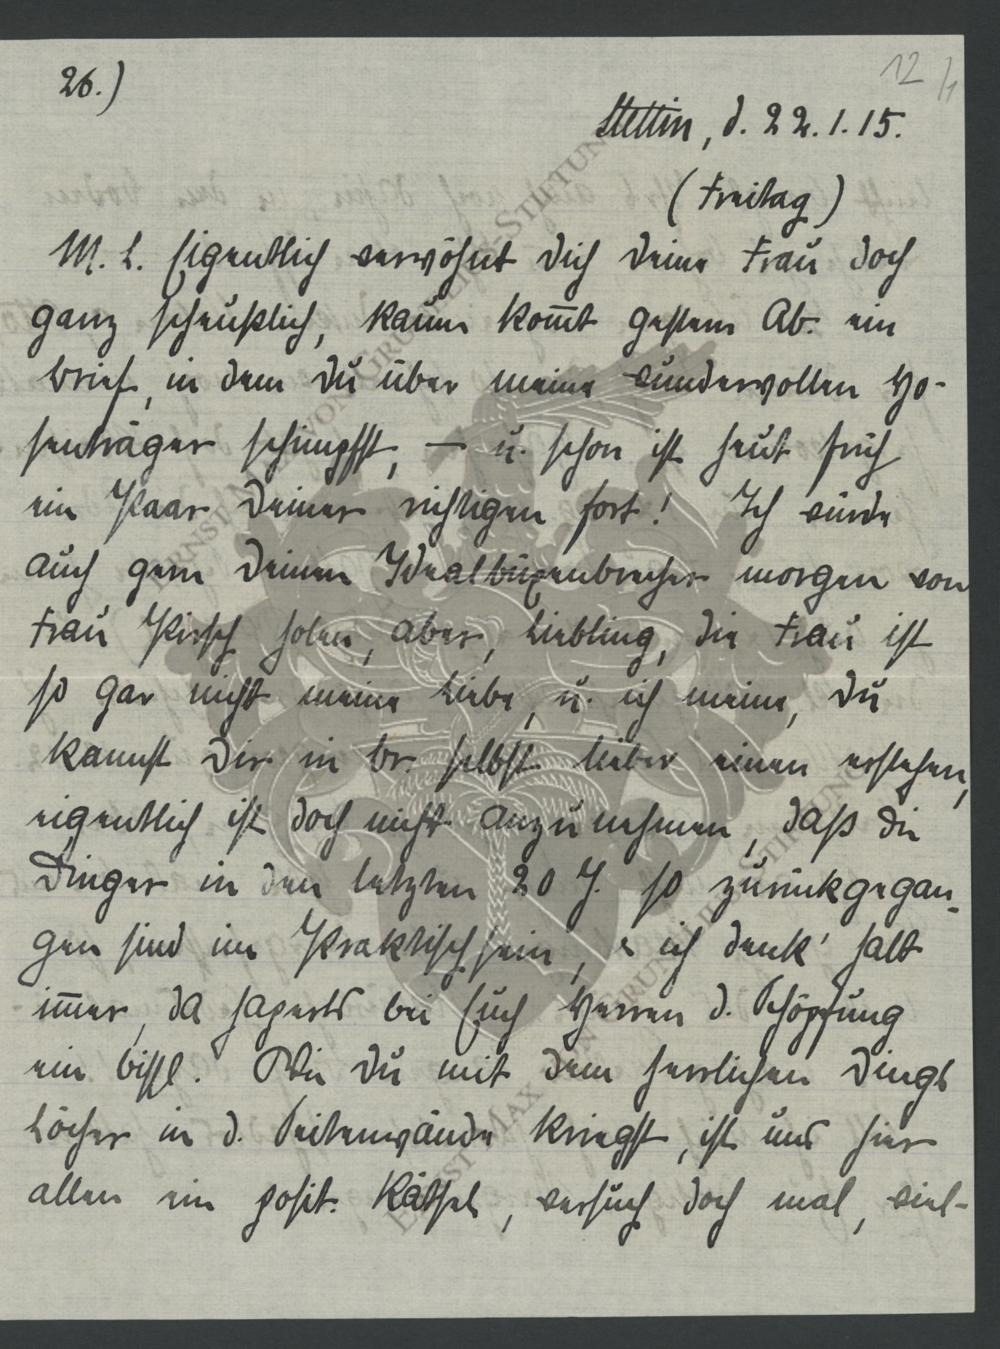 26.)
12
Stettin, d. 22.1.15.
(Freitag)
M. L. Eigentlich verwöhnt Dich Deine Frau doch
ganz scheußlich, kaum kom̅t gestern Ab. ein
Brief, in dem Du über meine wundervollen Ho-
senträger schimpfst, — u. schon ist heut früh
ein Paar Deiner richtigen fort! Ich würde
auch gern Deinen Idealbüxenbrecher morgen von
Frau Pirsch holen, aber, Liebling, die Frau ist
so gar nicht meine Liebe, u. ich meine, Du
kannst Dir in Br. selbst lieber einen erstehen,
eigentlich ist doch nicht anzunehmen, daß die
Dinger in den letzten 20 J. so zurückgegan-
gen sind im Praktischsein, ich denk' halt
im̅er, da haperts bei Euch Herren d. Schöpfung
ein bissl. Wie Du mit dem herrlichen Dings
Löcher in d. Seitenwände kriegst, ist uns hier
allen ein posit. Rätsel, versuch doch mal, viel-
ERNST MAX VON GRUNELIUS-STIFTUNG
ERNST MAX VON GRUNELIUS-STIFTUNG